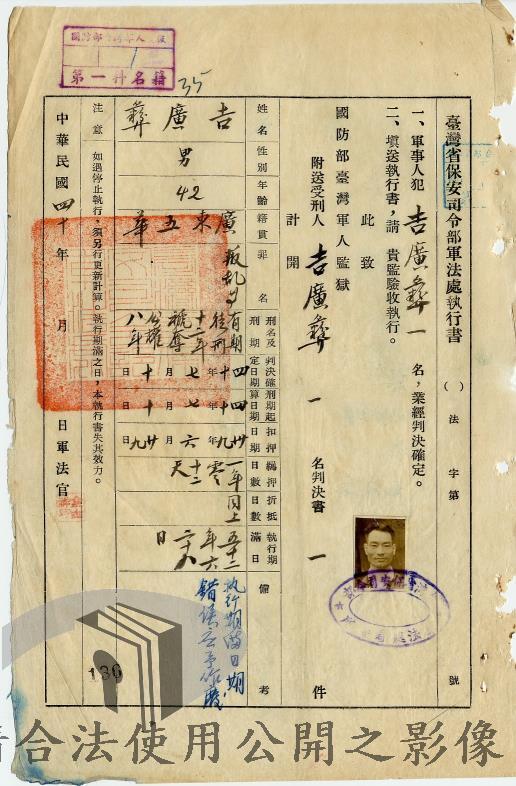 國防部臺灣軍人監獄
第一科名籍
35
臺灣省保安司令部軍法處執行書
( )法字第 號
一、軍事人犯 吉廣彝 一 名,業經判決確定。
二、填送執行書,請 貴監驗收執行。
此致
國防部臺灣軍人監獄
附送受刑人 吉廣彝 一 名判決書 一 件
計開
姓名 吉廣彝
性別 男
年齡 42
籍貫 廣東五華
罪名 叛亂
刑名及刑期 有期徒刑十二年褫奪公權八年
判決確定日期 四十年七月十日
刑期起算日期 四十年七月十日
扣押日期 廿九年六月廿九日
羈押日數 一年零十二天
折抵日數 同上
執行期滿日 五十二年六月二十八日
備考 执行期滿日期錯誤應予作廢
注意 如遇停止執行,須另行更新計算。執行期滿之日,本執行書失其效力。
中華民國四十年 月 日軍法官
136
合法使用公開之影像